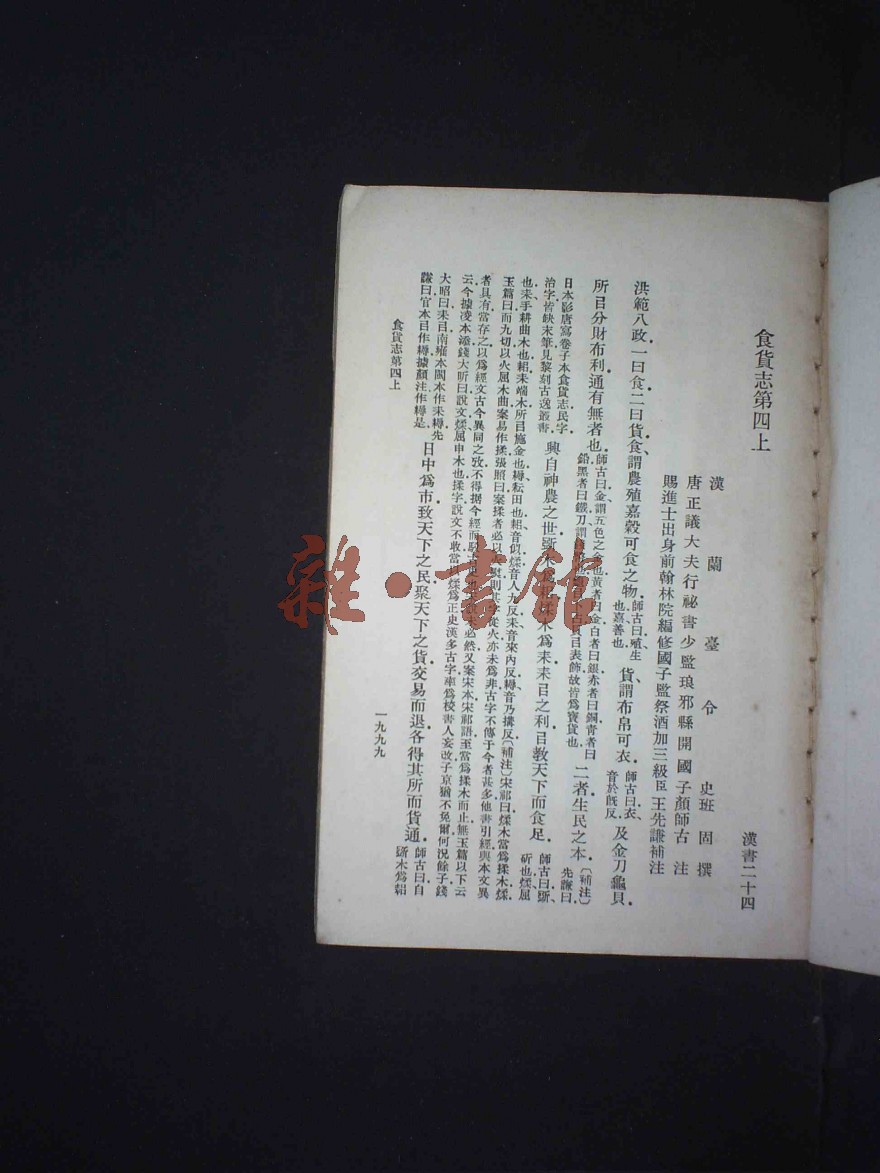 食貨志第四上
漢書二十四
漢蘭臺令史班固撰
唐正議大夫行祕書少監琅邪縣開國子顏師古注
賜進士出身前翰林院編修國子監祭酒加三級臣王先謙補注
洪範八政一曰食二曰貨食謂農殖嘉穀可食之物師古曰殖生也嘉善也貨謂布帛可衣師古曰衣音於旣反及金刀龜貝
所㠯分財布利通有無者也師古曰金謂五色之金也黃者曰金白者曰銀赤者曰銅青者曰鉛黑者曰鐵刀謂㠯表飾故皆爲寶貨也二者生民之本〔補注〕先謙曰
日本影唐寫卷子本食貨志民字治字皆缺末筆見黎刻古逸叢書興自神農之世斲木爲耜煣木爲耒耒㠯之利㠯敎天下而食足師古曰斲斫也煣屈
也耒手耕曲木也耜耒端木所㠯施金也耨耘田也耜音似煣音人九反耒音來內反耨音乃搆反〔補注〕宋祁曰煣木當爲揉木煣
玉篇曰而九切以火屈木曲案易作揉張照曰案揉者必以火從火亦未爲非古字不傳于今者甚多他書引經與本文異
者具有當存之以爲經文古今異同之攷不得据今經而必然又案宋本宋祁語至當爲揉木而止無玉篇以下云
云今據淩本添錢大昕曰說文煣屈申木也揉字說文不收當以煣爲正史漢多古字率爲校書人妄改子京猶不免爾何況餘子錢
大昭曰耒㠯南雍本閩本作耒耨先謙曰官本㠯作耨據顏注作耨是日中爲市致天下之民聚天下之貨交易而退各得其所而貨通師古曰自斲木爲耜
食貨志第四上
一九九九
雜·書館